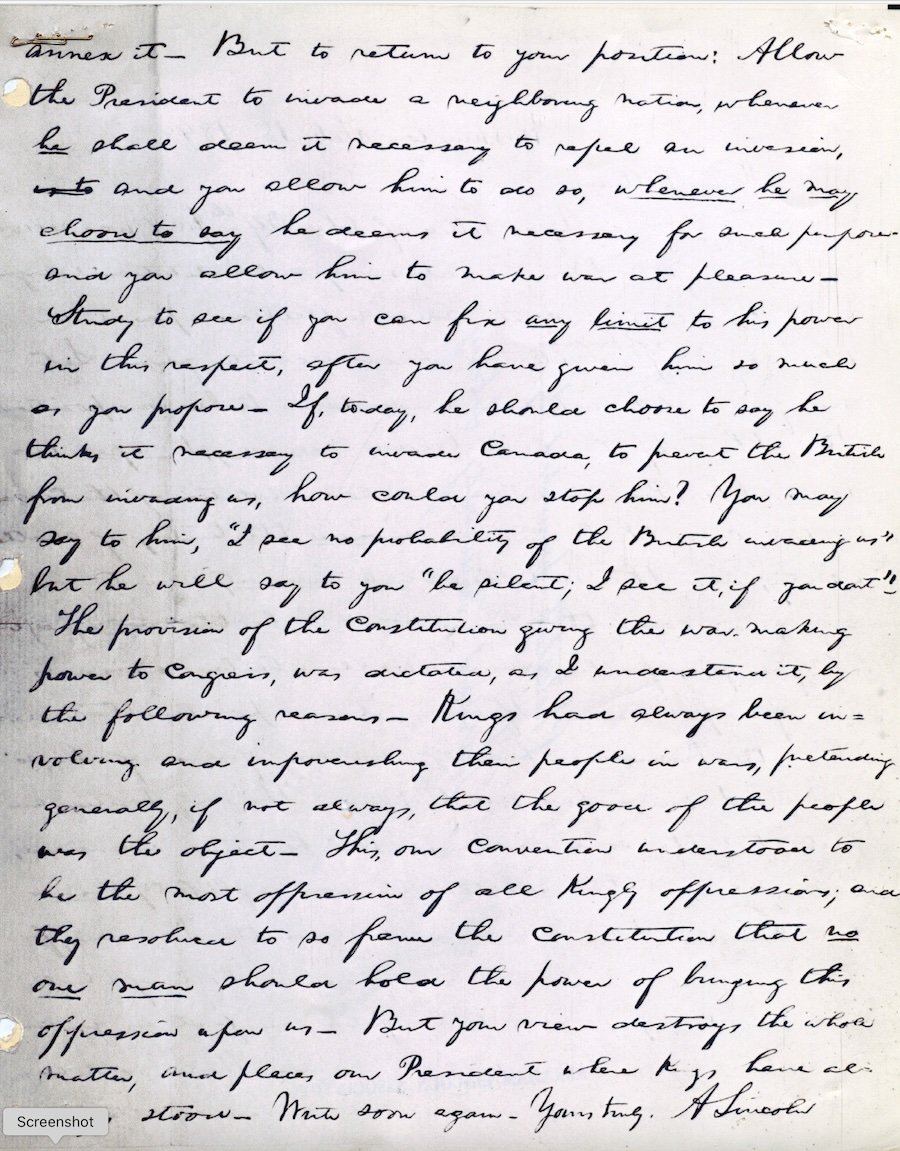 annex it — But to return to your position: Allow
the President to invade a neighboring nation, whenever
he shall deem it necessary to repel an invasion,
and you allow him to do so, whenever he may
choose to say he deems it necessary for such purpose —
and you allow him to make war at pleasure —
Study to see if you can fix any limit to his power
in this respect, after you have given him so much
as you propose — If, to-day, he should choose to say he
thinks it necessary to invade Canada, to prevent the British
from invading us, how could you stop him? You may
say to him, "I see no probability of the British invading us"
but he will say to you "be silent; I see it, if you dont"—
The provision of the Constitution giving the war-making
power to Congress, was dictated, as I understand it, by
the following reasons — Kings had always been in=
volving and impoverishing their people in wars, pretending
generally, if not always, that the good of the people
was the object — This, our convention understood to
be the most oppressive of all Kingly oppressions; and
they resolved to so frame the constitution that no
one man should hold the power of bringing this
oppression upon us — But your view destroys the whole
matter, and places our President where Kings have al-
stood — Write soon again — Yours truly. A Lincoln
Screenshot